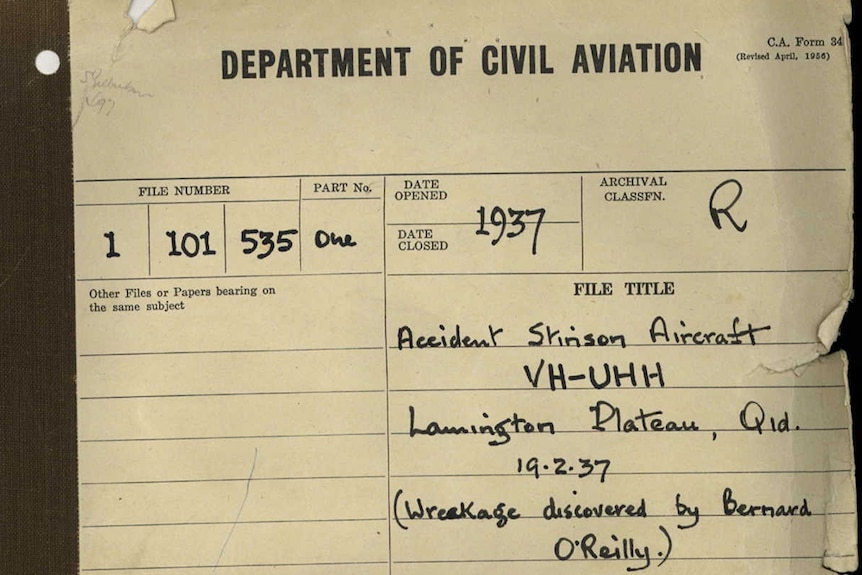 DEPARTMENT OF CIVIL AVIATION
C.A. Form 34
(Revised April, 1956)
FILE NUMBER
PART No.
1 101 535 One
DATE OPENED
DATE CLOSED
1937
ARCHIVAL
CLASSFN.
R
Other Files or Papers bearing on
the same subject
FILE TITLE
Accident Stinson Aircraft
VH-UHH
Lamington Plateau, Qld.
19.2.37
(Wreckage discovered by Bernard
O'Reilly.)